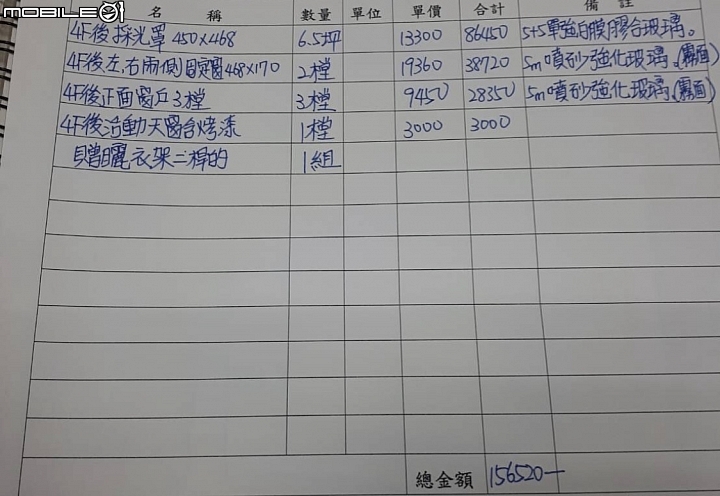 MOBILE01
名 稱 數量 單位 單價 合計 備 註
4F後採光罩 450×468 6.5坪 13300 86450 5+5單強白膜膠合玻璃。
4F後左.右兩側固定窗468×170 2樘 19360 38720 5m噴砂強化玻璃.(霧面)
4F後正面窗戶3樘 3樘 9450 28350 5m噴砂強化玻璃.(霧面)
4F後活動天窗台烤漆 1樘 3000 3000
贈曬衣架三桿的 1組
總金額 156520—